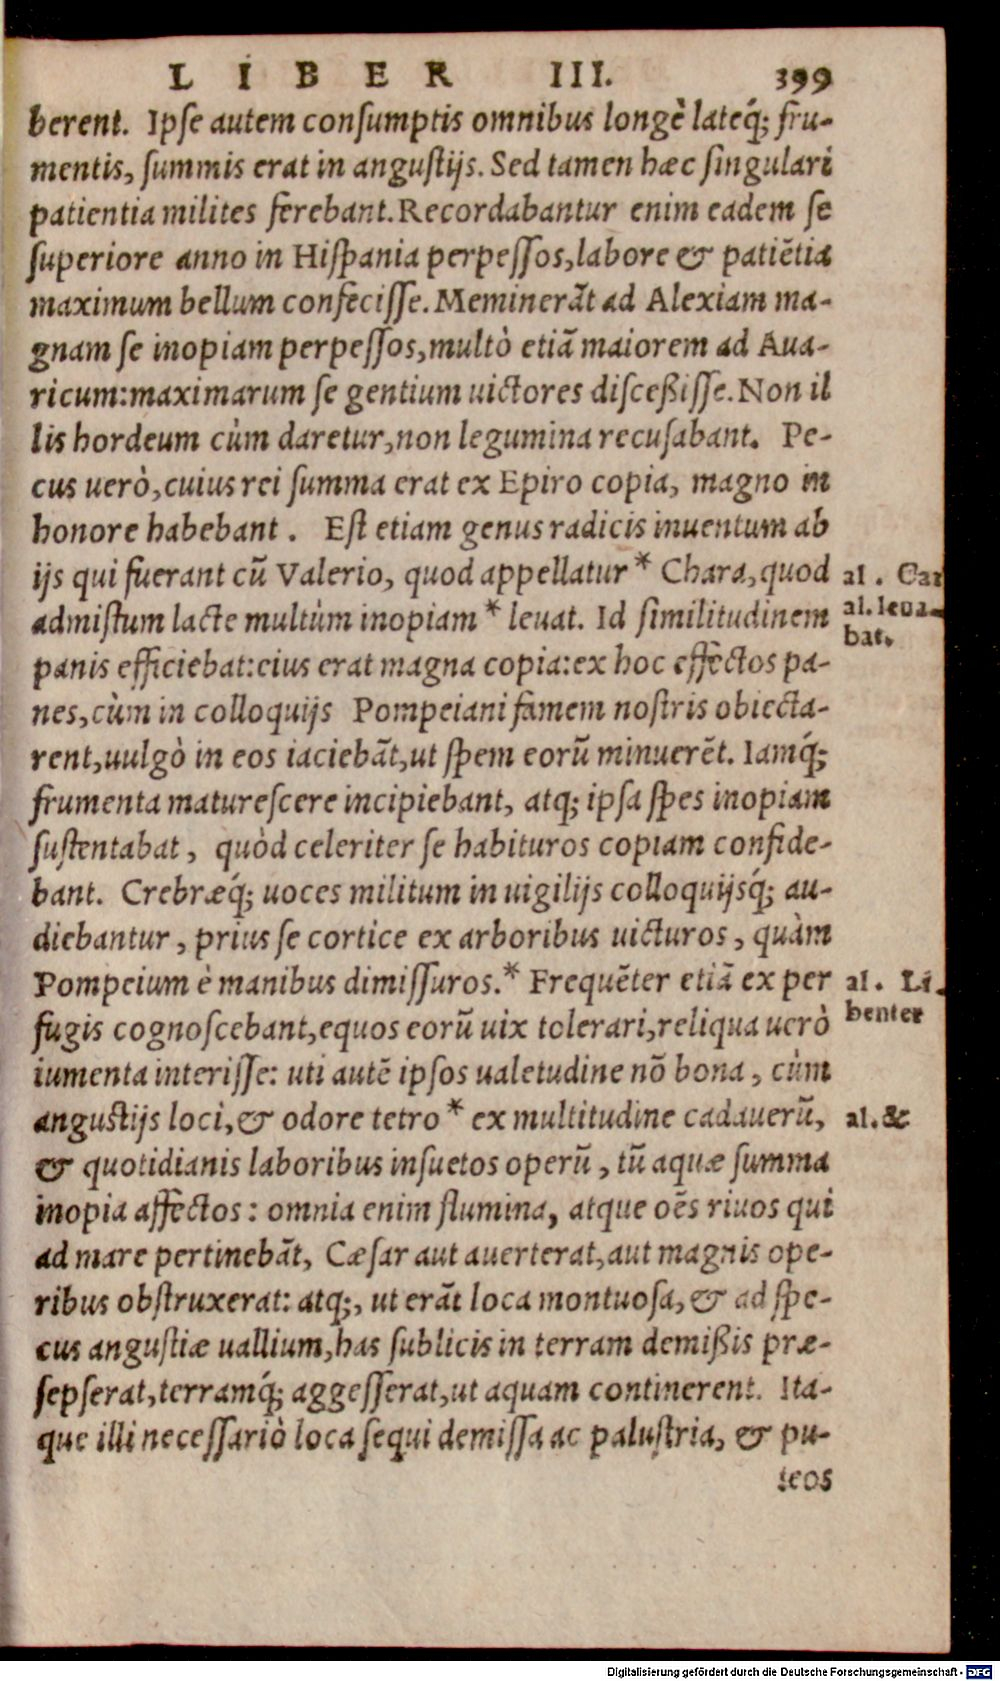 LIBER III. 399
berent. Ipſe autem conſumptis omnibus longè lateq́; fru-
mentis, ſummis erat in anguſtijs. Sed tamen hæc ſingulari
patientia milites ferebant. Recordabantur enim eadem ſe
ſuperiore anno in Hiſpania perpeſſos, labore & patiẽtia
maximum bellum confeciſſe. Meminerãt ad Alexiam ma-
gnam ſe inopiam perpeſſos, multò etiã maiorem ad Aua-
ricum: maximarum ſe gentium uictores diſceßiſſe. Non il
lis hordeum cùm daretur, non legumina recuſabant. Pe-
cus uerò, cuius rei ſumma erat ex Epiro copia, magno in
honore habebant. Eſt etiam genus radicis inuentum ab
ijs qui fuerant cũ Valerio, quod appellatur * Chara, quod
al. Car
admiſtum lacte multùm inopiam * leuat. Id ſimilitudinem
al. leua-
bat.
panis efficiebat: eius erat magna copia: ex hoc effectos pa-
nes, cùm in colloquijs Pompeiani famem noſtris obiecta-
rent, uulgò in eos iaciebãt, ut ſpem eorũ minuerẽt. Iamq́;
frumenta matureſcere incipiebant, atq; ipſa ſpes inopiam
ſuſtentabat, quòd celeriter ſe habituros copiam confide-
bant. Crebræq́; uoces militum in uigilijs colloquijsq́; au-
diebantur, prius ſe cortice ex arboribus uicturos, quàm
Pompeium è manibus dimiſſuros. * Frequẽter etiã ex per
al. Li-
benter
fugis cognoſcebant, equos eorũ uix tolerari, reliqua uerò
iumenta interiſſe: uti autẽ ipſos ualetudine nõ bona, cùm
anguſtijs loci, & odore tetro * ex multitudine cadauerũ,
al. &
& quotidianis laboribus inſuetos operũ, tũ aquæ ſumma
inopia affectos: omnia enim flumina, atque oẽs riuos qui
ad mare pertinebãt, Cæſar aut auerterat, aut magnis ope-
ribus obſtruxerat: atq;, ut erãt loca montuoſa, & ad ſpe-
cus anguſtiæ uallium, has ſublicis in terram demißis præ-
ſepſerat, terramq́; aggeſſerat, ut aquam continerent. Ita-
que illi neceſſariò loca ſequi demiſſa ac paluſtria, & pu-
teos
Digitalisierung gefördert durch die Deutsche Forschungsgemeinschaft - DFG